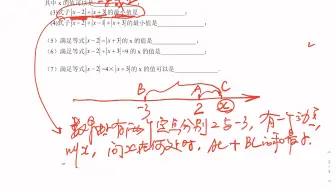 其中 x 的值可以是
(3)式子|x−2|+|x+3|的最小值是
(4)式子|x−2|+|x−1|+|x+3|的最小值是
(5)满足等式|x−2|=|x+3|的 x 的值是
(6)满足等式|x−2|+|x+3|=9 的 x 的值是
(7)满足等式|x−2|=4×|x+3|的 x 的值可以是
B A C
−3 2 x
数轴上有两个定点分别2与−3,有一个动点
x,问x在何处时,AC+BC的和最小